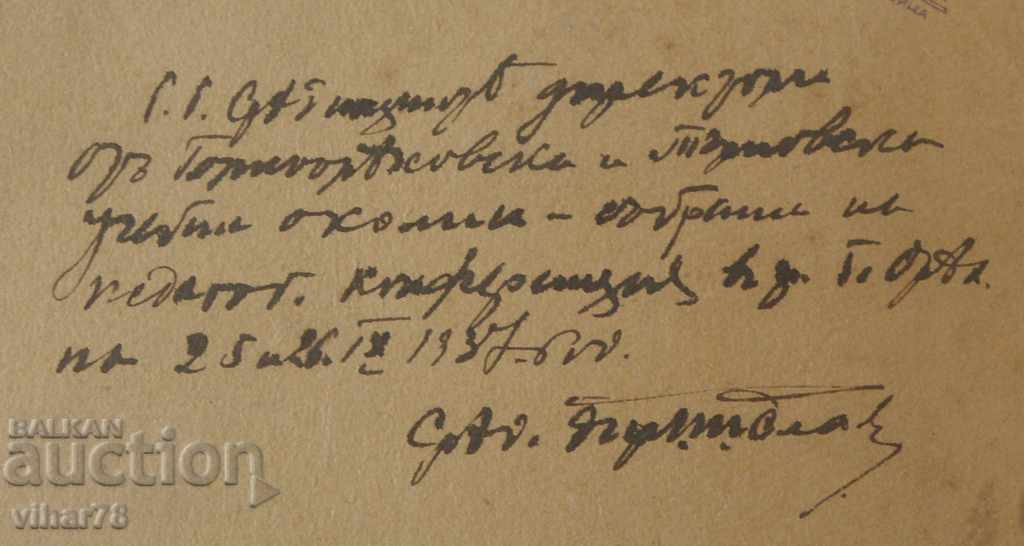 Г. Г. директори
отъ Горнооряховска и Търновска
учебни околии – събрани на
педагог. конференция въ гр. Г. Орѣх.
на 25 и 26. IX 1937 год.
BALKAN
auction
vihar78